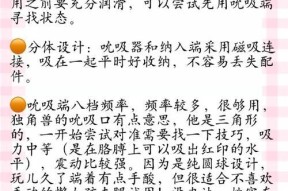 用之前要充分润滑，可以尝试先用吮吸端
寻找状态。
分体设计：吮吸器和纳入端采用磁吸连
接，吸在一起平时好收纳，不容易丢失配
件。
吮吸端八档频率，频率较多，很够用，
独角兽的吮吸口有点意思，他是三角形
的，一开始尝试对准需要找一下技巧，吸
力中等（是在胳膊上可以吸出红印的水
平），震动比较强。因为是纯圆球设计，
玩儿久了端着有点手酸，但很适合不喜欢